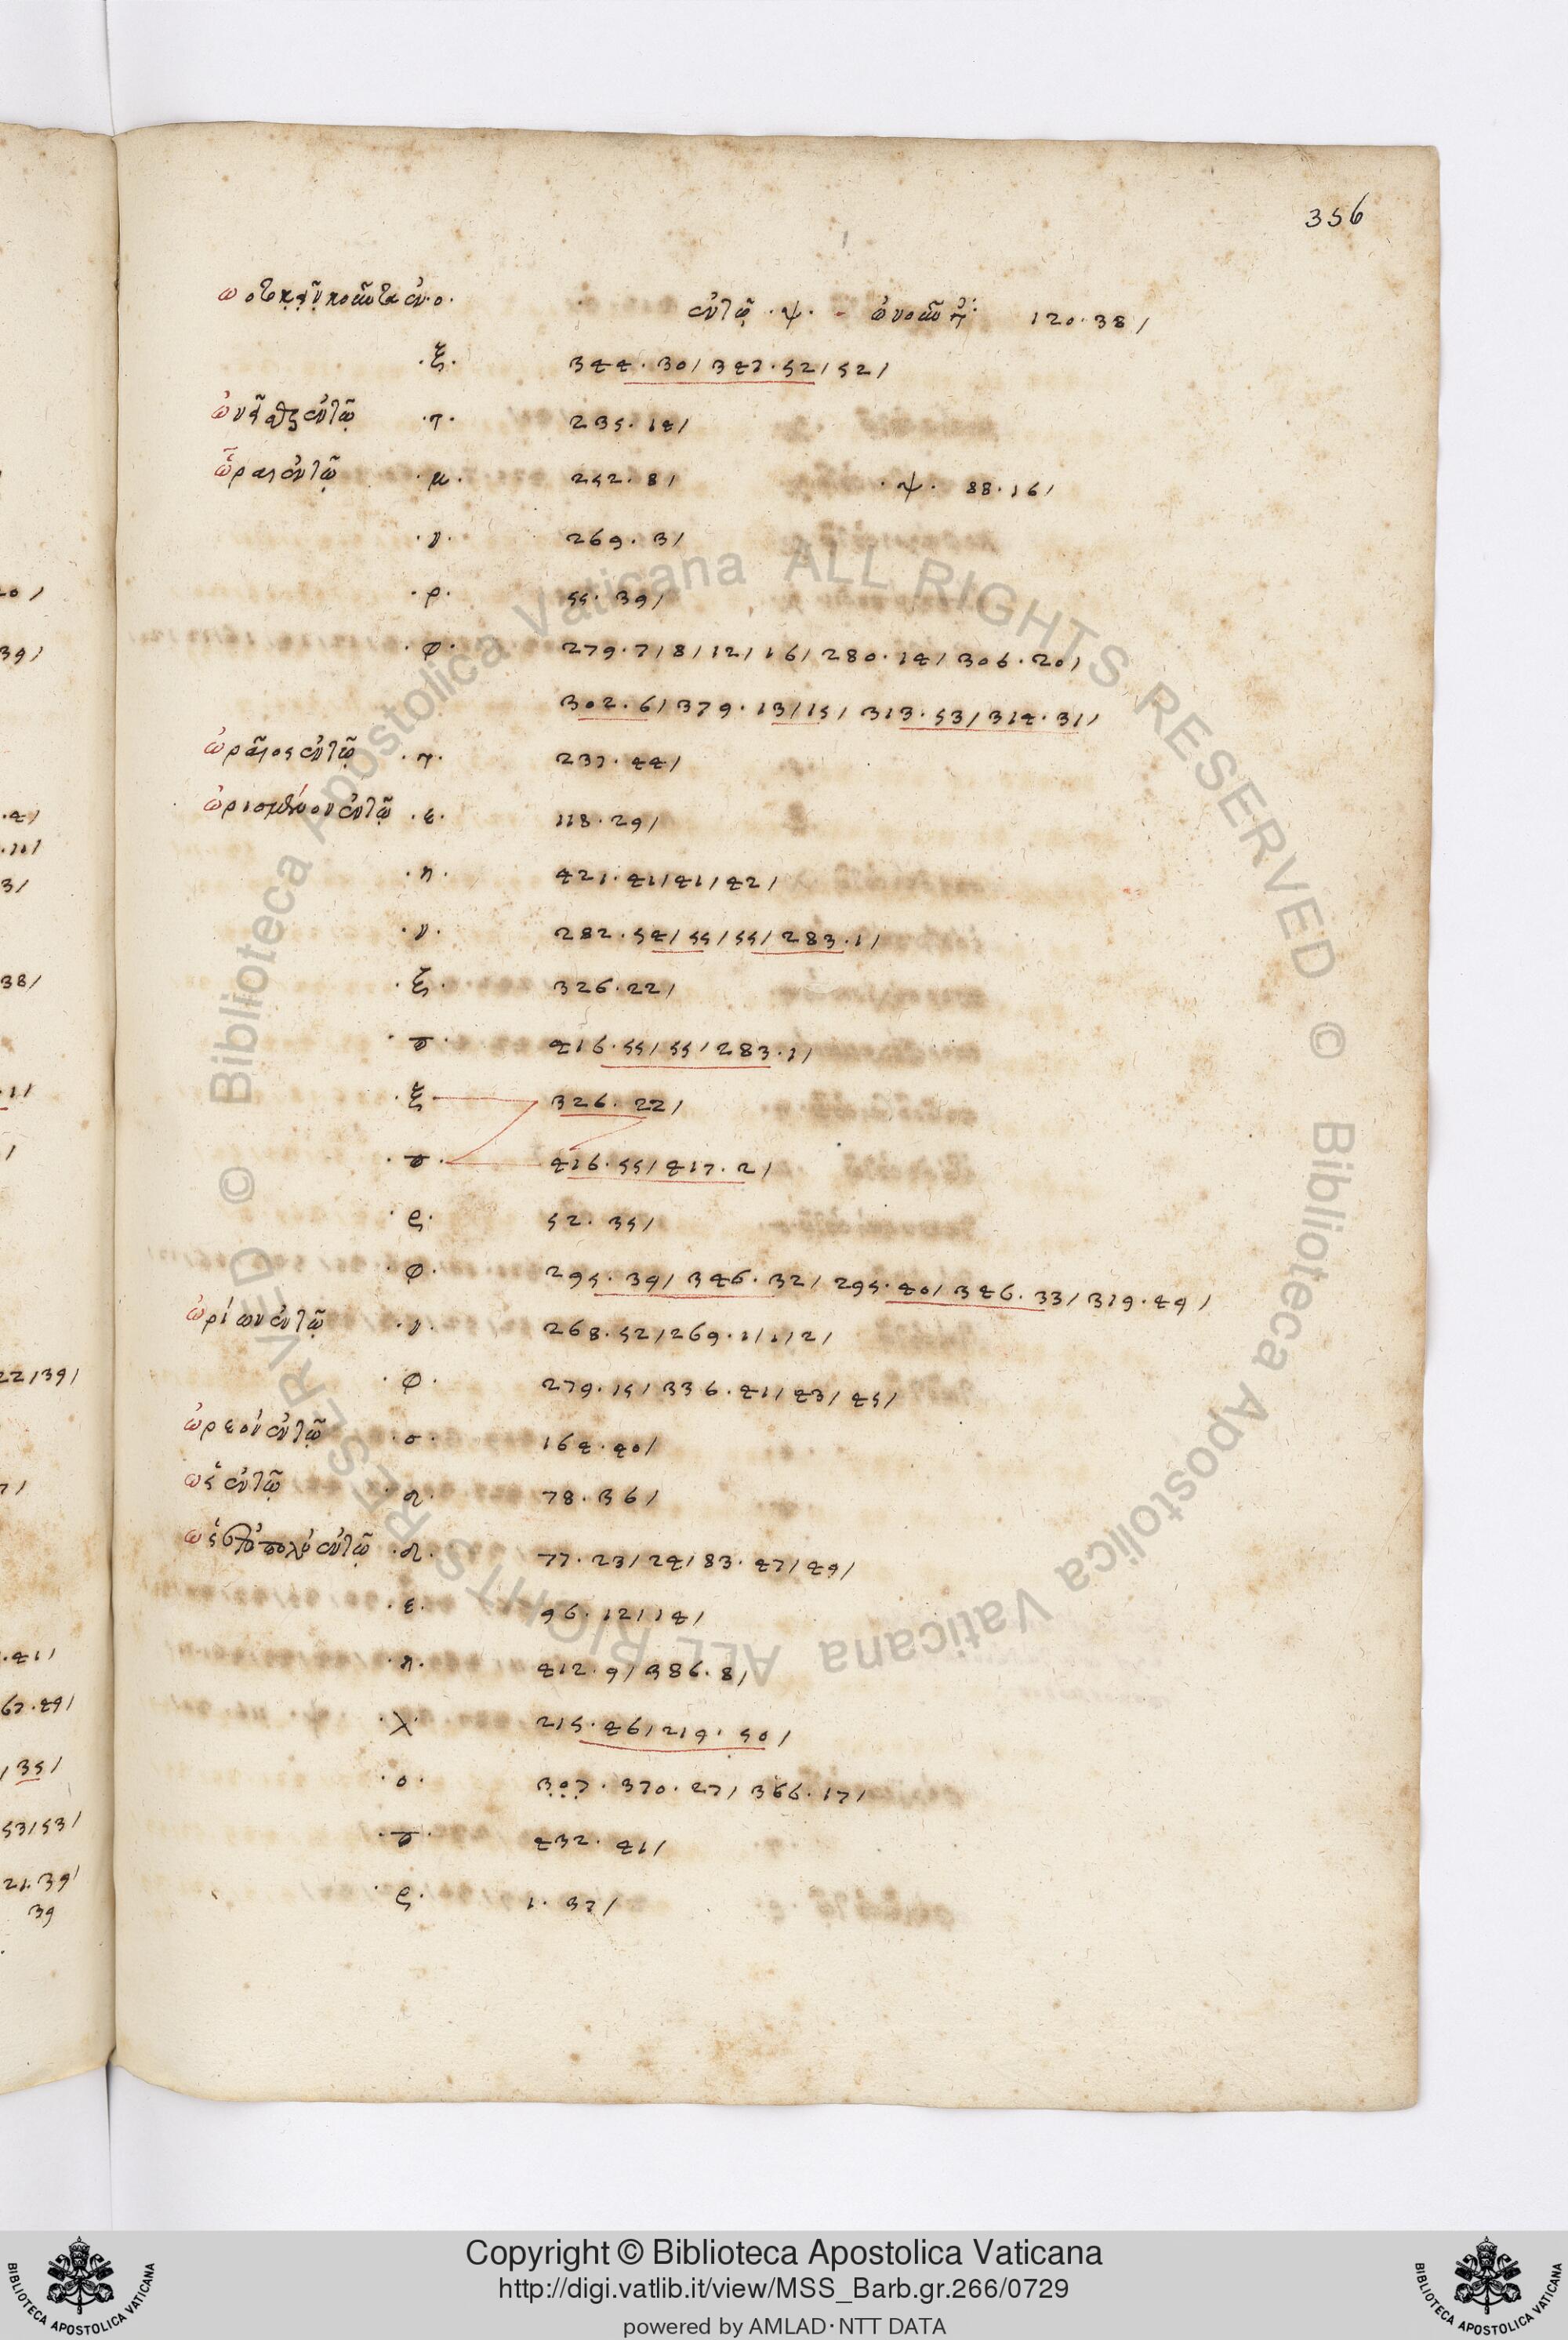 356
ἐν τῷ · ψ · 120 · 38 /
· ξ · 344 · 30 / 347 · 52 / 52 /
ἐν τῷ · π · 235 · 14 /
ὧραι ἐν τῷ · μ · 252 · 8 / · ψ · 88 · 16 /
· ν · 269 · 3 /
· ρ · 55 · 39 /
· φ · 279 · 7 / 8 / 12 / 16 / 280 · 14 / 306 · 20 /
302 · 6 / 379 · 13 / 15 / 313 · 53 / 314 · 31 /
ὡραῖος ἐν τῷ · π · 237 · 44 /
ὡρισμένον ἐν τῷ · ε · 118 · 29 /
· η · 421 · 41 / 41 / 42 /
· ν · 282 · 54 / 55 / 55 / 283 · 1 /
· ξ · 326 · 22 /
416 · 55 / 55 / 283 · 1 /
· ξ · 326 · 22 /
416 · 55 / 417 · 2 /
· ρ · 52 · 35 /
· φ · 295 · 39 / 346 · 32 / 295 · 40 / 346 · 33 / 319 · 49 /
ὠρίων ἐν τῷ · ν · 268 · 52 / 269 · 1 / 1 / 2 /
· φ · 279 · 15 / 336 · 41 / 43 / 45 /
ὠρεοὺ ἐν τῷ · σ · 164 · 40 /
ὡς ἐν τῷ 78 · 36 /
ὡς ἐπιτοπολὺ ἐν τῷ 77 · 23 / 24 / 83 · 47 / 49 /
· ε · 96 · 12 / 14 /
· η · 412 · 9 / 386 · 8 /
· λ · 215 · 46 / 219 · 50 /
· ο · 307 · 370 · 27 / 366 · 17 /
432 · 41 /
· ρ · 1 · 37 /
Copyright © Biblioteca Apostolica Vaticana
http://digi.vatlib.it/view/MSS_Barb.gr.266/0729
powered by AMLAD·NTT DATA
BIBLIOTECA APOSTOLICA VATICANA
BIBLIOTECA APOSTOLICA VATICANA
© Biblioteca Apostolica Vaticana ALL RIGHTS RESERVED
© Biblioteca Apostolica Vaticana ALL RIGHTS RESERVED